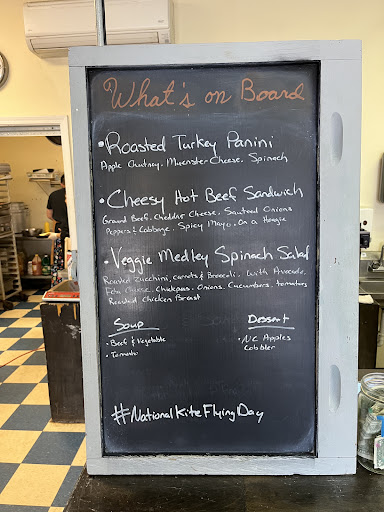 What's on Board
• Roasted Turkey Panini
Apple Chutney, Muenster Cheese, Spinach
• Cheesy Hot Beef Sandwich
Ground Beef, Cheddar Cheese, Sauteed Onions
Peppers & Cabbage, Spicy Mayo, On a Hoagie
• Veggie Medley Spinach Salad
Roasted Zucchini, Carrots & Broccoli, With Avocado,
Feta Cheese, Chickpeas, Onions, Cucumbers, tomatoes,
Roasted Chicken Breast
Soup
• Beef & Vegetable
• Tomato
Dessert
• NC Apples
Cobbler
#NationalKiteFlyingDay